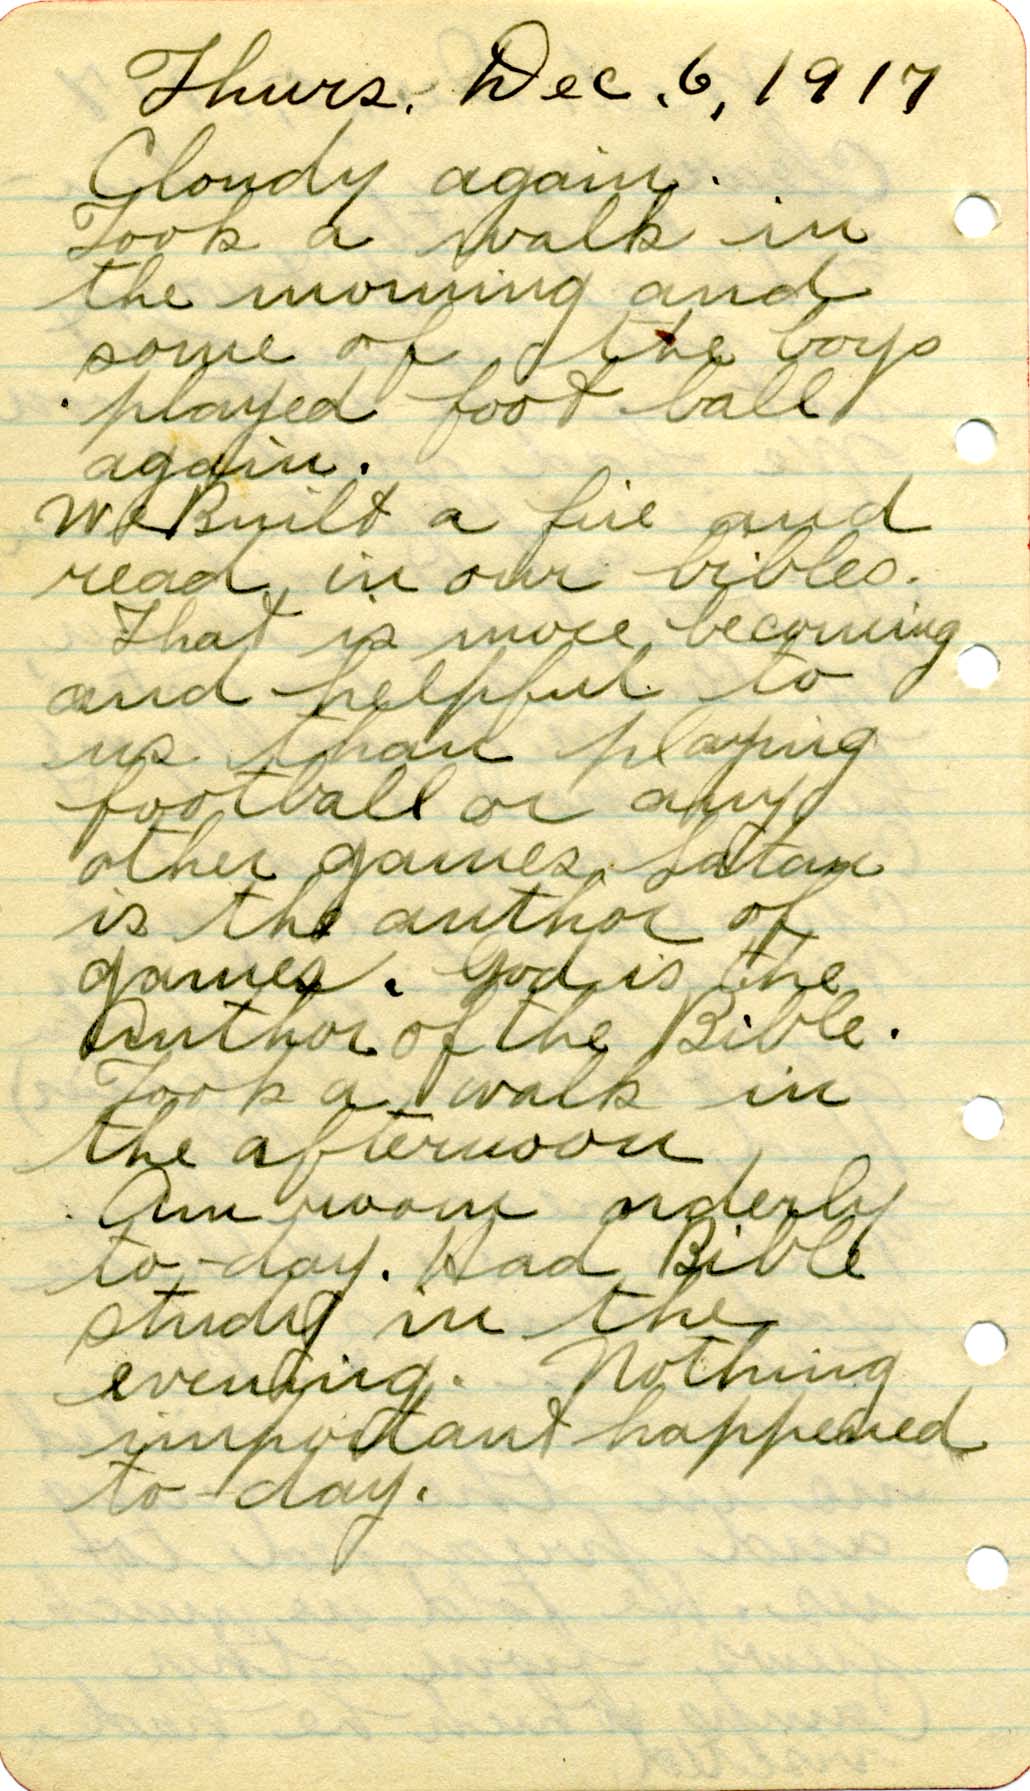 Thurs. Dec. 6, 1917
Cloudy again.
Took a walk in
the morning and
some of the boys
played foot ball
again.
We Built a fire and
read in our bibles.
That is more becoming
and helpful to
us than playing
football or any
other games. Satan
is the author of
games. God is the
Author of the Bible.
Took a walk in
the afternoon
Am room orderly
to-day. Had Bible
study in the
evening. Nothing
important happened
to-day.